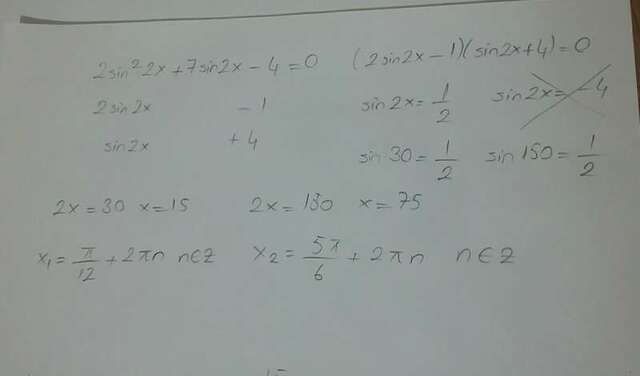 2sin²2x + 7sin2x - 4 = 0 (2sin2x - 1)(sin2x + 4) = 0
2sin2x - 1 sin2x = 1/2 sin2x = -4
sin2x + 4 sin 30 = 1/2 sin 150 = 1/2
2x = 30 x = 15 2x = 150 x = 75
x₁ = π/12 + 2πn n∈Z x₂ = 5π/6 + 2πn n∈Z